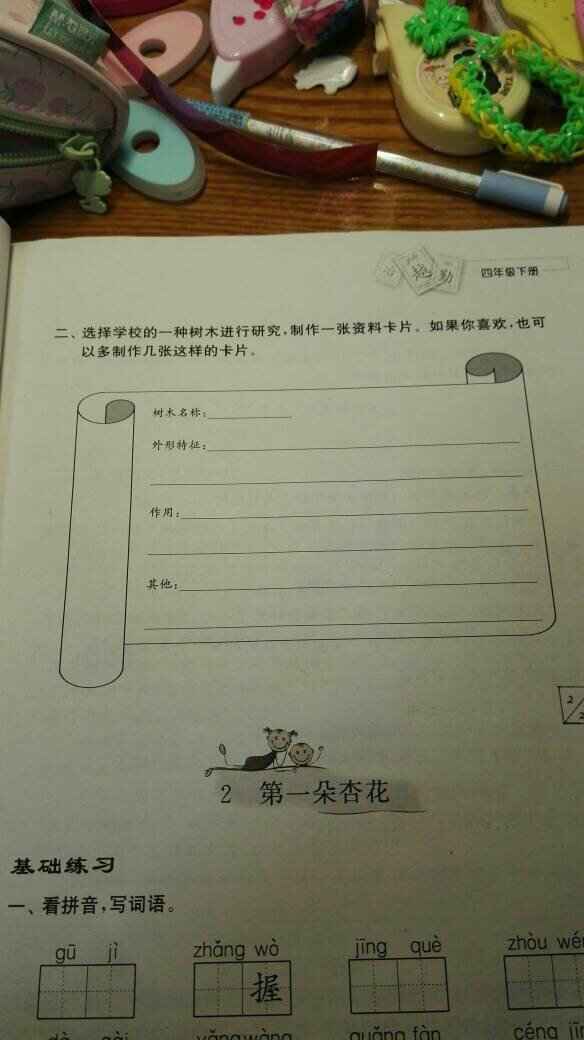 四年级下册
二、选择学校的一种树木进行研究,制作一张资料卡片。如果你喜欢,也可
以多制作几张这样的卡片。
树木名称:
外形特征:
作用:
其他:
2 第一朵杏花
基础练习
一、看拼音,写词语。
gū jì zhǎng wò jīng què zhòu
握